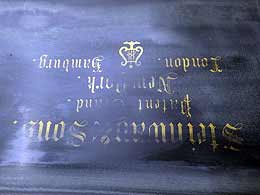 Steinway & Sons.
Patent Grand.
New York.
London. Hamburg.